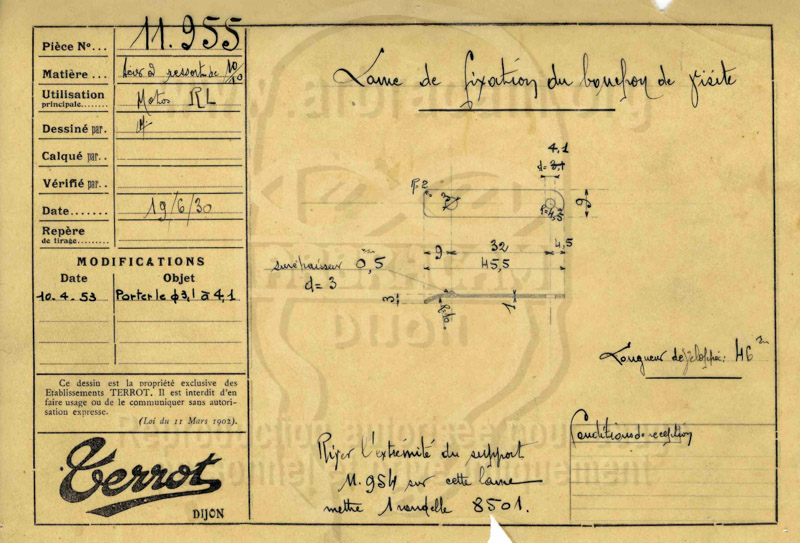 Pièce N°... 11.955
Matière ... ressort de 10/10
Utilisation
principale........ Motos RL
Dessiné par.
Calqué par..
Vérifié par..
Date....... 19/6/30
Repère
de tirage.........
MODIFICATIONS
Date Objet
10.4.53 Porter le ϕ3,1 à 4,1
Ce dessin est la propriété exclusive des
Etablissements TERROT. Il est interdit d'en
faire usage ou de le communiquer sans autori-
sation expresse.
(Loi du 11 Mars 1902).
Terrot
DIJON
Lame de fixation du bouchon de visite
4,1
d= 3,1
R=2
3
9
9 32 4,5
45,5
surépaisseur 0,5
d= 3
3
1
Longueur développée: 46
Conditions de réception
River l'extrémité du support
11.954 sur cette lame
mettre 1 rondelle 8501.